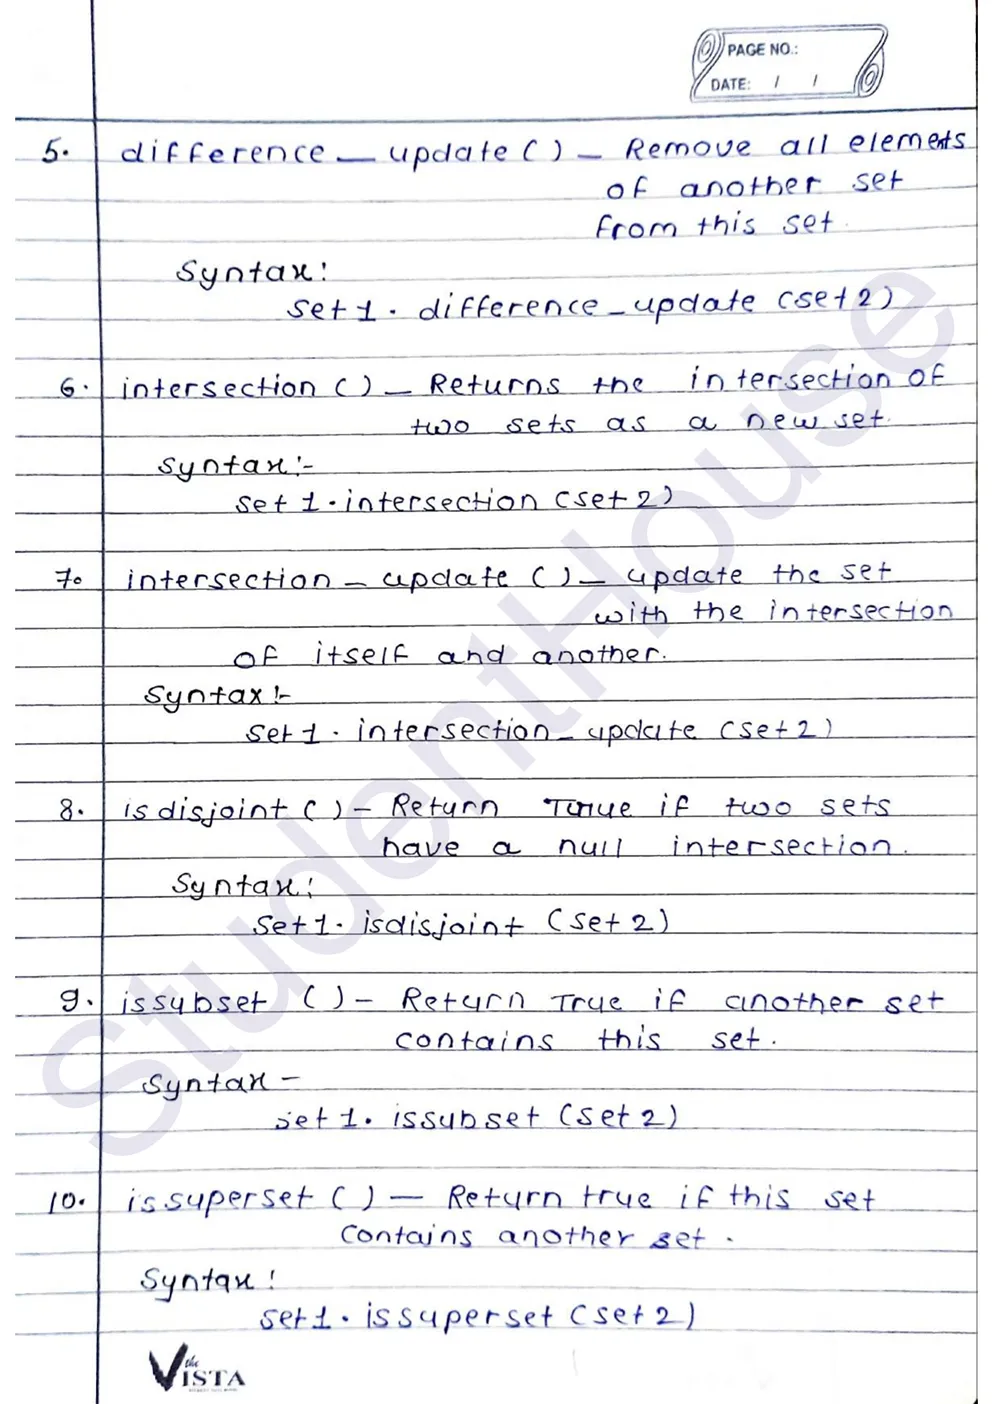 PAGE NO.:
DATE: / /
5. difference_update() - Remove all elements
of another set
from this set.
Syntax:
set1.difference_update(set2)
6. intersection() - Returns the intersection of
two sets as a new set.
Syntax:-
set1.intersection(set2)
7. intersection_update() - update the set
with the intersection
of itself and another.
Syntax:-
set1.intersection_update(set2)
8. isdisjoint() - Return True if two sets
have a null intersection.
Syntax:
Set1.isdisjoint(set2)
9. issubset() - Return True if another set
contains this set.
Syntax -
set1.issubset(set2)
10. issuperset() - Return true if this set
contains another set.
Syntax:
set1.issuperset(set2)
StudentHouse
the
VISTA